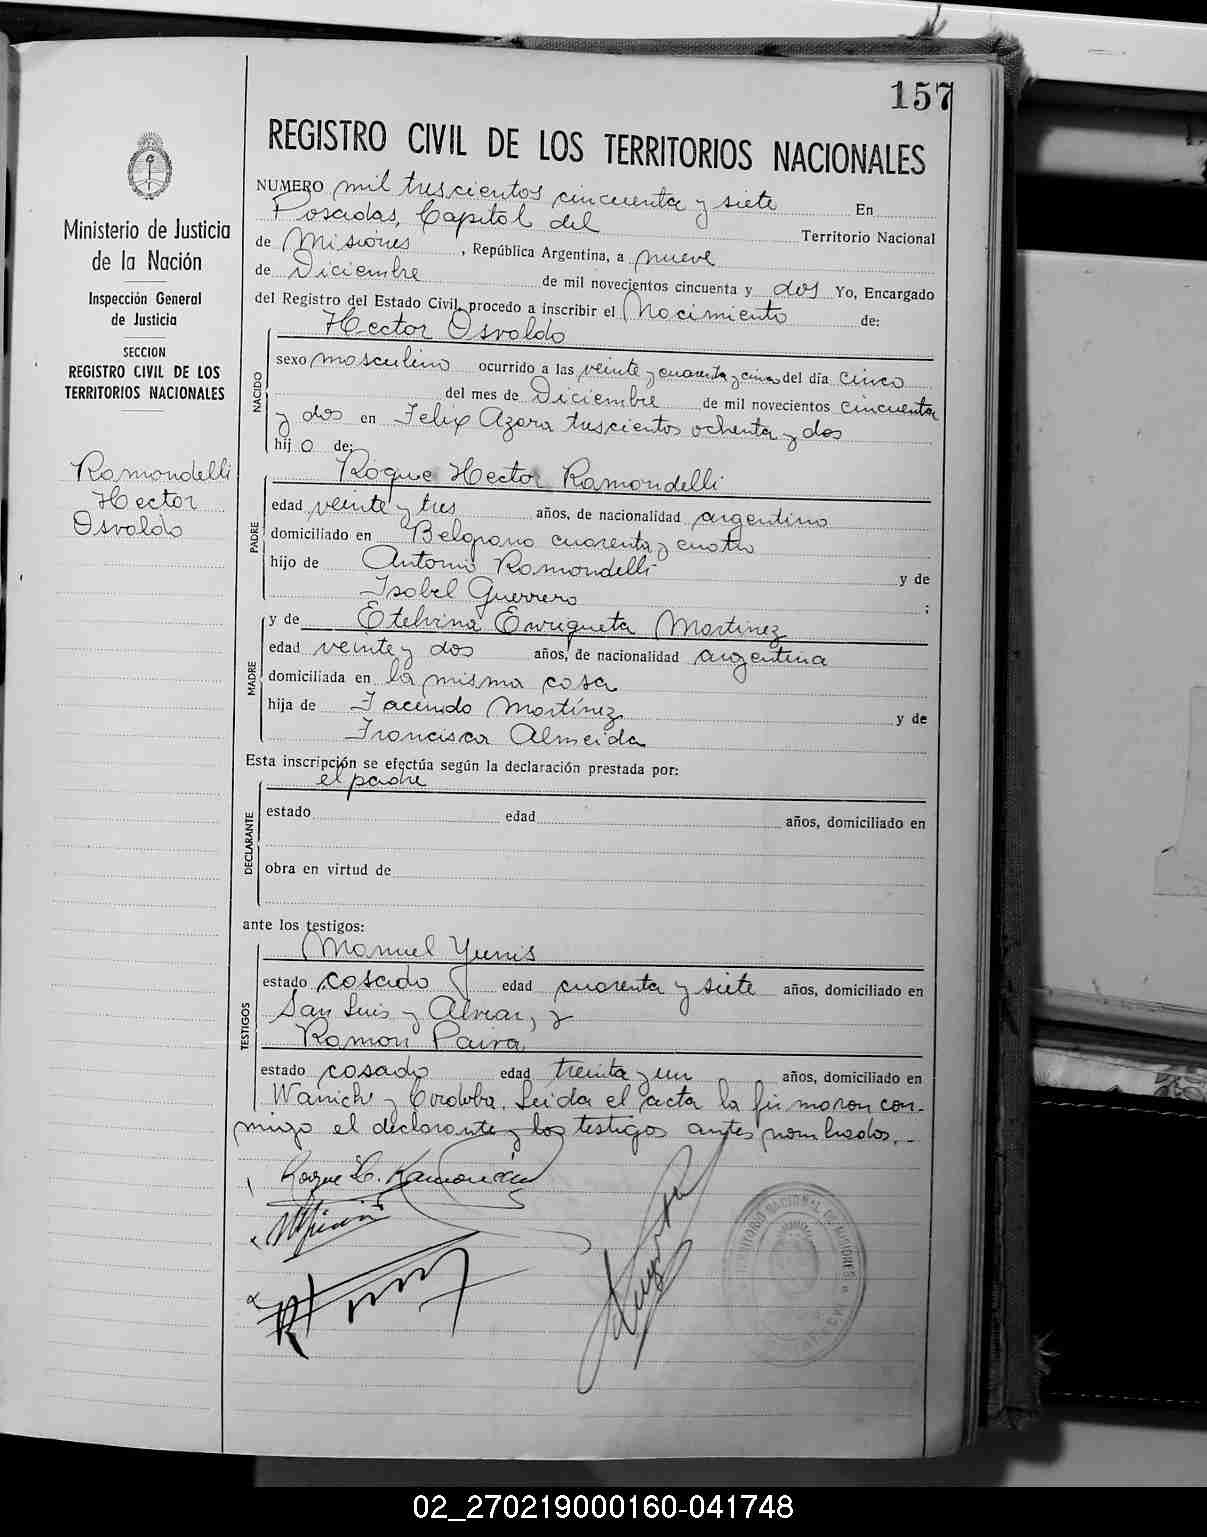 157
REGISTRO CIVIL DE LOS TERRITORIOS NACIONALES
Ministerio de Justicia
de la Nación
Inspección General
de Justicia
SECCION
REGISTRO CIVIL DE LOS
TERRITORIOS NACIONALES
Ramondelli
Hector
Osvaldo
NUMERO mil trescientos cincuenta y siete En
Posadas, Capital del Territorio Nacional
de Misiones, República Argentina, a nueve
de Diciembre de mil novecientos cincuenta y dos Yo, Encargado
del Registro del Estado Civil, procedo a inscribir el Nacimiento de:
Hector Osvaldo
NACIDO
sexo masculino ocurrido a las veinte y cuarenta y cinco del día cinco
del mes de Diciembre de mil novecientos cincuenta
y dos en Felix Azara trescientos ochenta y dos
hijo de:
PADRE
Roque Hector Ramondelli
edad veinte y tres años, de nacionalidad argentino
domiciliado en Belgrano cuarenta y cuatro
hijo de Antonio Ramondelli y de
Isabel Guerrero ;
MADRE
y de Etelvina Enriqueta Martinez
edad veinte y dos años, de nacionalidad argentina
domiciliada en la misma casa
hija de Facundo Martínez y de
Francisca Almeida
Esta inscripción se efectúa según la declaración prestada por:
el padre
DECLARANTE
estado edad años, domiciliado en
obra en virtud de
ante los testigos:
TESTIGOS
Manuel Yunis
estado casado edad cuarenta y siete años, domiciliado en
San Luis y Alvear, y
Ramon Paiva
estado casado edad treinta y un años, domiciliado en
y Cordoba. Leida el acta la firmaron con-
migo el declarante y los testigos antes nombrados.-
Roque H. Ramondelli
TERRITORIO NACIONAL DE MISIONES
02_270219000160-041748